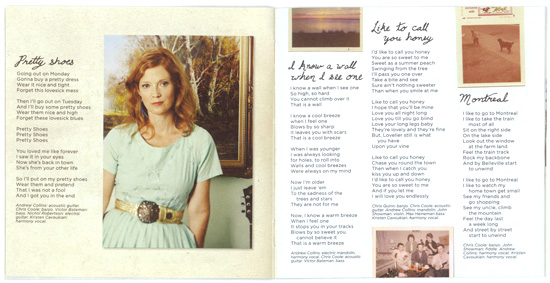 Pretty Shoes
Going out on Monday
Gonna buy a pretty dress
Wear it nice and tight
Forget this lovesick mess
Then I'll go out on Tuesday
And I'll buy some pretty shoes
Wear them nice and high
Forget these lovesick blues
Pretty Shoes
Pretty Shoes
Pretty Shoes
You loved me like forever
I saw it in your eyes
Now she's back in town
She's from your other life
So I'll put on my pretty shoes
Wear them and pretend
That I was not a fool
And I got you in the end
Andrew Collins: acoustic guitar
Chris Coole: banjo, Victor Bateman: bass, Victor Robertson: electric guitar, Kristen Cavoukian: harmony vocal.
I know a wall
when I see one
I know a wall when I see one
So high, so hard
You cannot climb over it
That is a wall
I know a cool breeze
when I feel one
Blows by so sharp
It leaves you with scars
That is a cool breeze
When I was younger
I was always looking
for holes, to roll into
Walls and cool breezes
Were always on my mind
Now I'm older
I just leave 'em
To the sadness of the
trees and stars
They are not for me
Now, I know a warm breeze
When I feel one
It stops you in your tracks
Blows by so sweet you
cannot believe it
That is a warm breeze
Andrew Collins: electric mandolin, harmony vocal, Chris Coole: acoustic guitar, Victor Bateman: bass.
Like to call
you honey
I'd like to call you honey
You are so sweet to me
Sweet as a summer peach
Swinging from the tree
I'll pass you one over
Take a bite and see
Sure ain't nothing sweeter
Than when you smile at me
Like to call you honey
I hope that you'll be mine
Love you all night long
Love you till you go blind
Love your long legs baby
They're lovely and they're fine
But, Lovelier still is what
you have
Upon your vine
Like to call you honey
Chase you round the town
Then when I catch you
kiss you up and down
I'd like to call you honey
You are so sweet to me
And if you let me
I will love you endlessly
Chris Quinn: banjo, Chris Coole: acoustic guitar, Andrew Collins: mandolin, John Showman: violin, Max Heineman: bass, Kristen Cavoukian: harmony vocal.
Montreal
I like to go to Montreal
I like to take the train
most of all
Sit on the right side
On the lake side
Look out the window
at the farm land
Feel the train track
Rock my backbone
And by Belleville start
to unwind
I like to go to Montreal
I like to watch my
home town get small
See my friends and
go shopping
See my uncle, climb
the mountain
Feel the day last
a week long
And street by street
start to unwind
Chris Coole: banjo, John Showman: fiddle, Andrew Collins: harmony vocal, Kristen Cavoukian: harmony vocal.